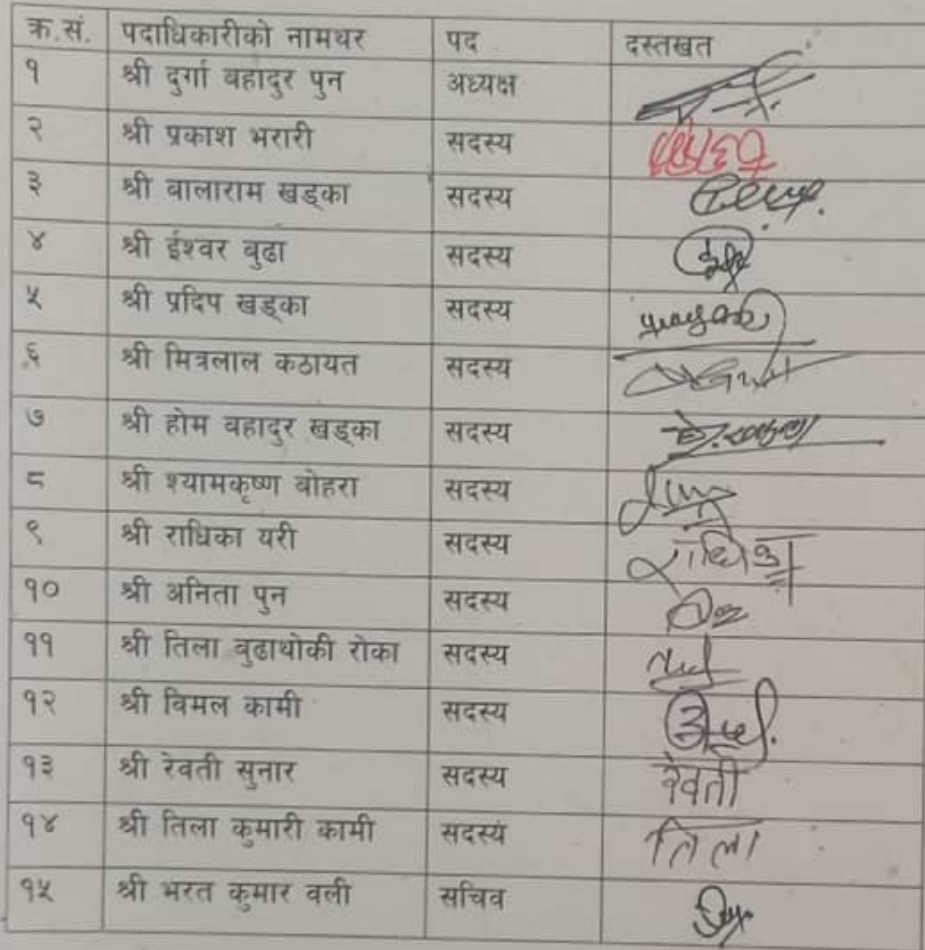 क्र.सं. पदाधिकारीको नामथर पद दस्तखत
१ श्री दुर्गा बहादुर पुन अध्यक्ष
२ श्री प्रकाश भरारी सदस्य
३ श्री बालाराम खड्का सदस्य
४ श्री ईश्वर बुढा सदस्य
५ श्री प्रदिप खड्का सदस्य
६ श्री मित्रलाल कठायत सदस्य
७ श्री होम बहादुर खड्का सदस्य
८ श्री श्यामकृष्ण बोहरा सदस्य
९ श्री राधिका यरी सदस्य राधिका
१० श्री अनिता पुन सदस्य
११ श्री तिला बुढाथोकी रोका सदस्य
१२ श्री विमल कामी सदस्य
१३ श्री रेवती सुनार सदस्य रेवती
१४ श्री तिला कुमारी कामी सदस्य तिला
१५ श्री भरत कुमार वली सचिव